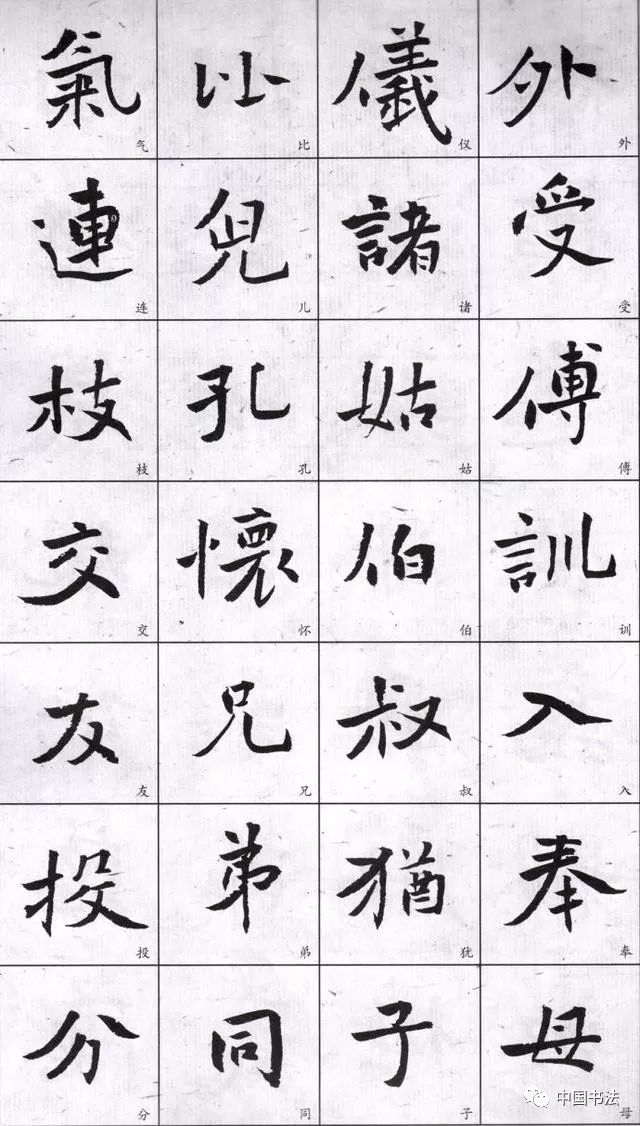 外受傅訓入奉母
外受傅训入奉母
儀諸姑伯叔猶子
仪诸姑伯叔犹子
比兒孔懷兄弟同
比儿孔怀兄弟同
氣連枝交友投分
气连枝交友投分
中国书法